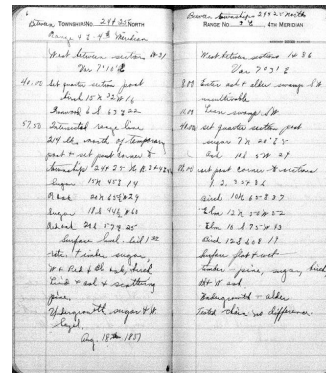 Between TOWNSHIPS No 24 & 25 NORTH
Range 3 E 4th Meridian
West between sections
Var 7°10' E
40.00 Set quarter section post
Birch 15 N 32 W 16
57.50 Intersected range line
214 lks north of temporary
post & set post corner to
townships 24 & 25 N R 3 & 4 E
Sugar 10 N 45 E 14
Sugar 18 S 44 W 60
Surface level. Soil 1st
rate. Timber sugar,
W & Red & Elk oak, birch
Lind & ash & scattering
pine.
Undergrowth sugar & W
hazel.
Aug. 18th 1851
Between Townships 24 & 25 North
Range No 3 E 4TH MERIDIAN
West between sections 1 & 36
Var 7°31' E
8.00 Enter ash & alder swamp S W
uncultivable
10.00 Leave swamp S W
40.00 Set quarter section post
Sugar 7 N 20 E 5
Ash 10 S 5 W 29
80.00 Set post corner to sections
1, 2, 35 & 36
Birch 10 N 65 E 37
Elm 12 N 55 W 52
Elm 10 S 75 W 43
Bird 12 S 60 E 17
Surface flat & wet
Timber - pine, sugar, birch
W ash
Undergrowth - alder
Tested chain no difference.